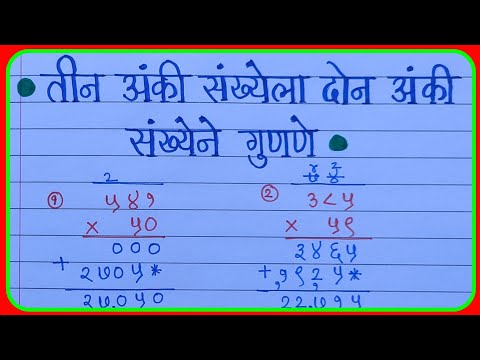 • तीन अंकी संख्येला दोन अंकी
संख्येने गुणणे •
२
① ५४१
× ५०
०००
+ २७०५*
२७०५०
४ २
७ ४
② ३८५
× ५९
३४६५
+ १९२५*
२२७१५